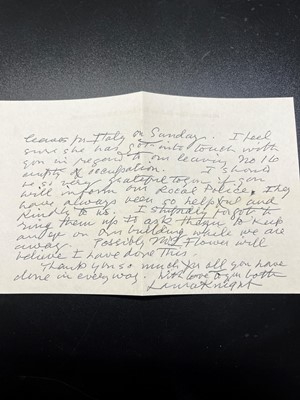 leaves for Italy on Sunday. I feel
sure she has got into touch with
you in regard to our leaving No 16
empty of occupation. I should
be so very grateful to you if you
will inform our Local Police. They
have always been so helpful and
kindly to us. I stupidly forgot to
ring them up to ask them to keep
an eye on our building while we are
away. Possibly Mrs Flower will
believe I have done this.
Thank you so much for all you have
done in every way. With love to you both
Laura Knight